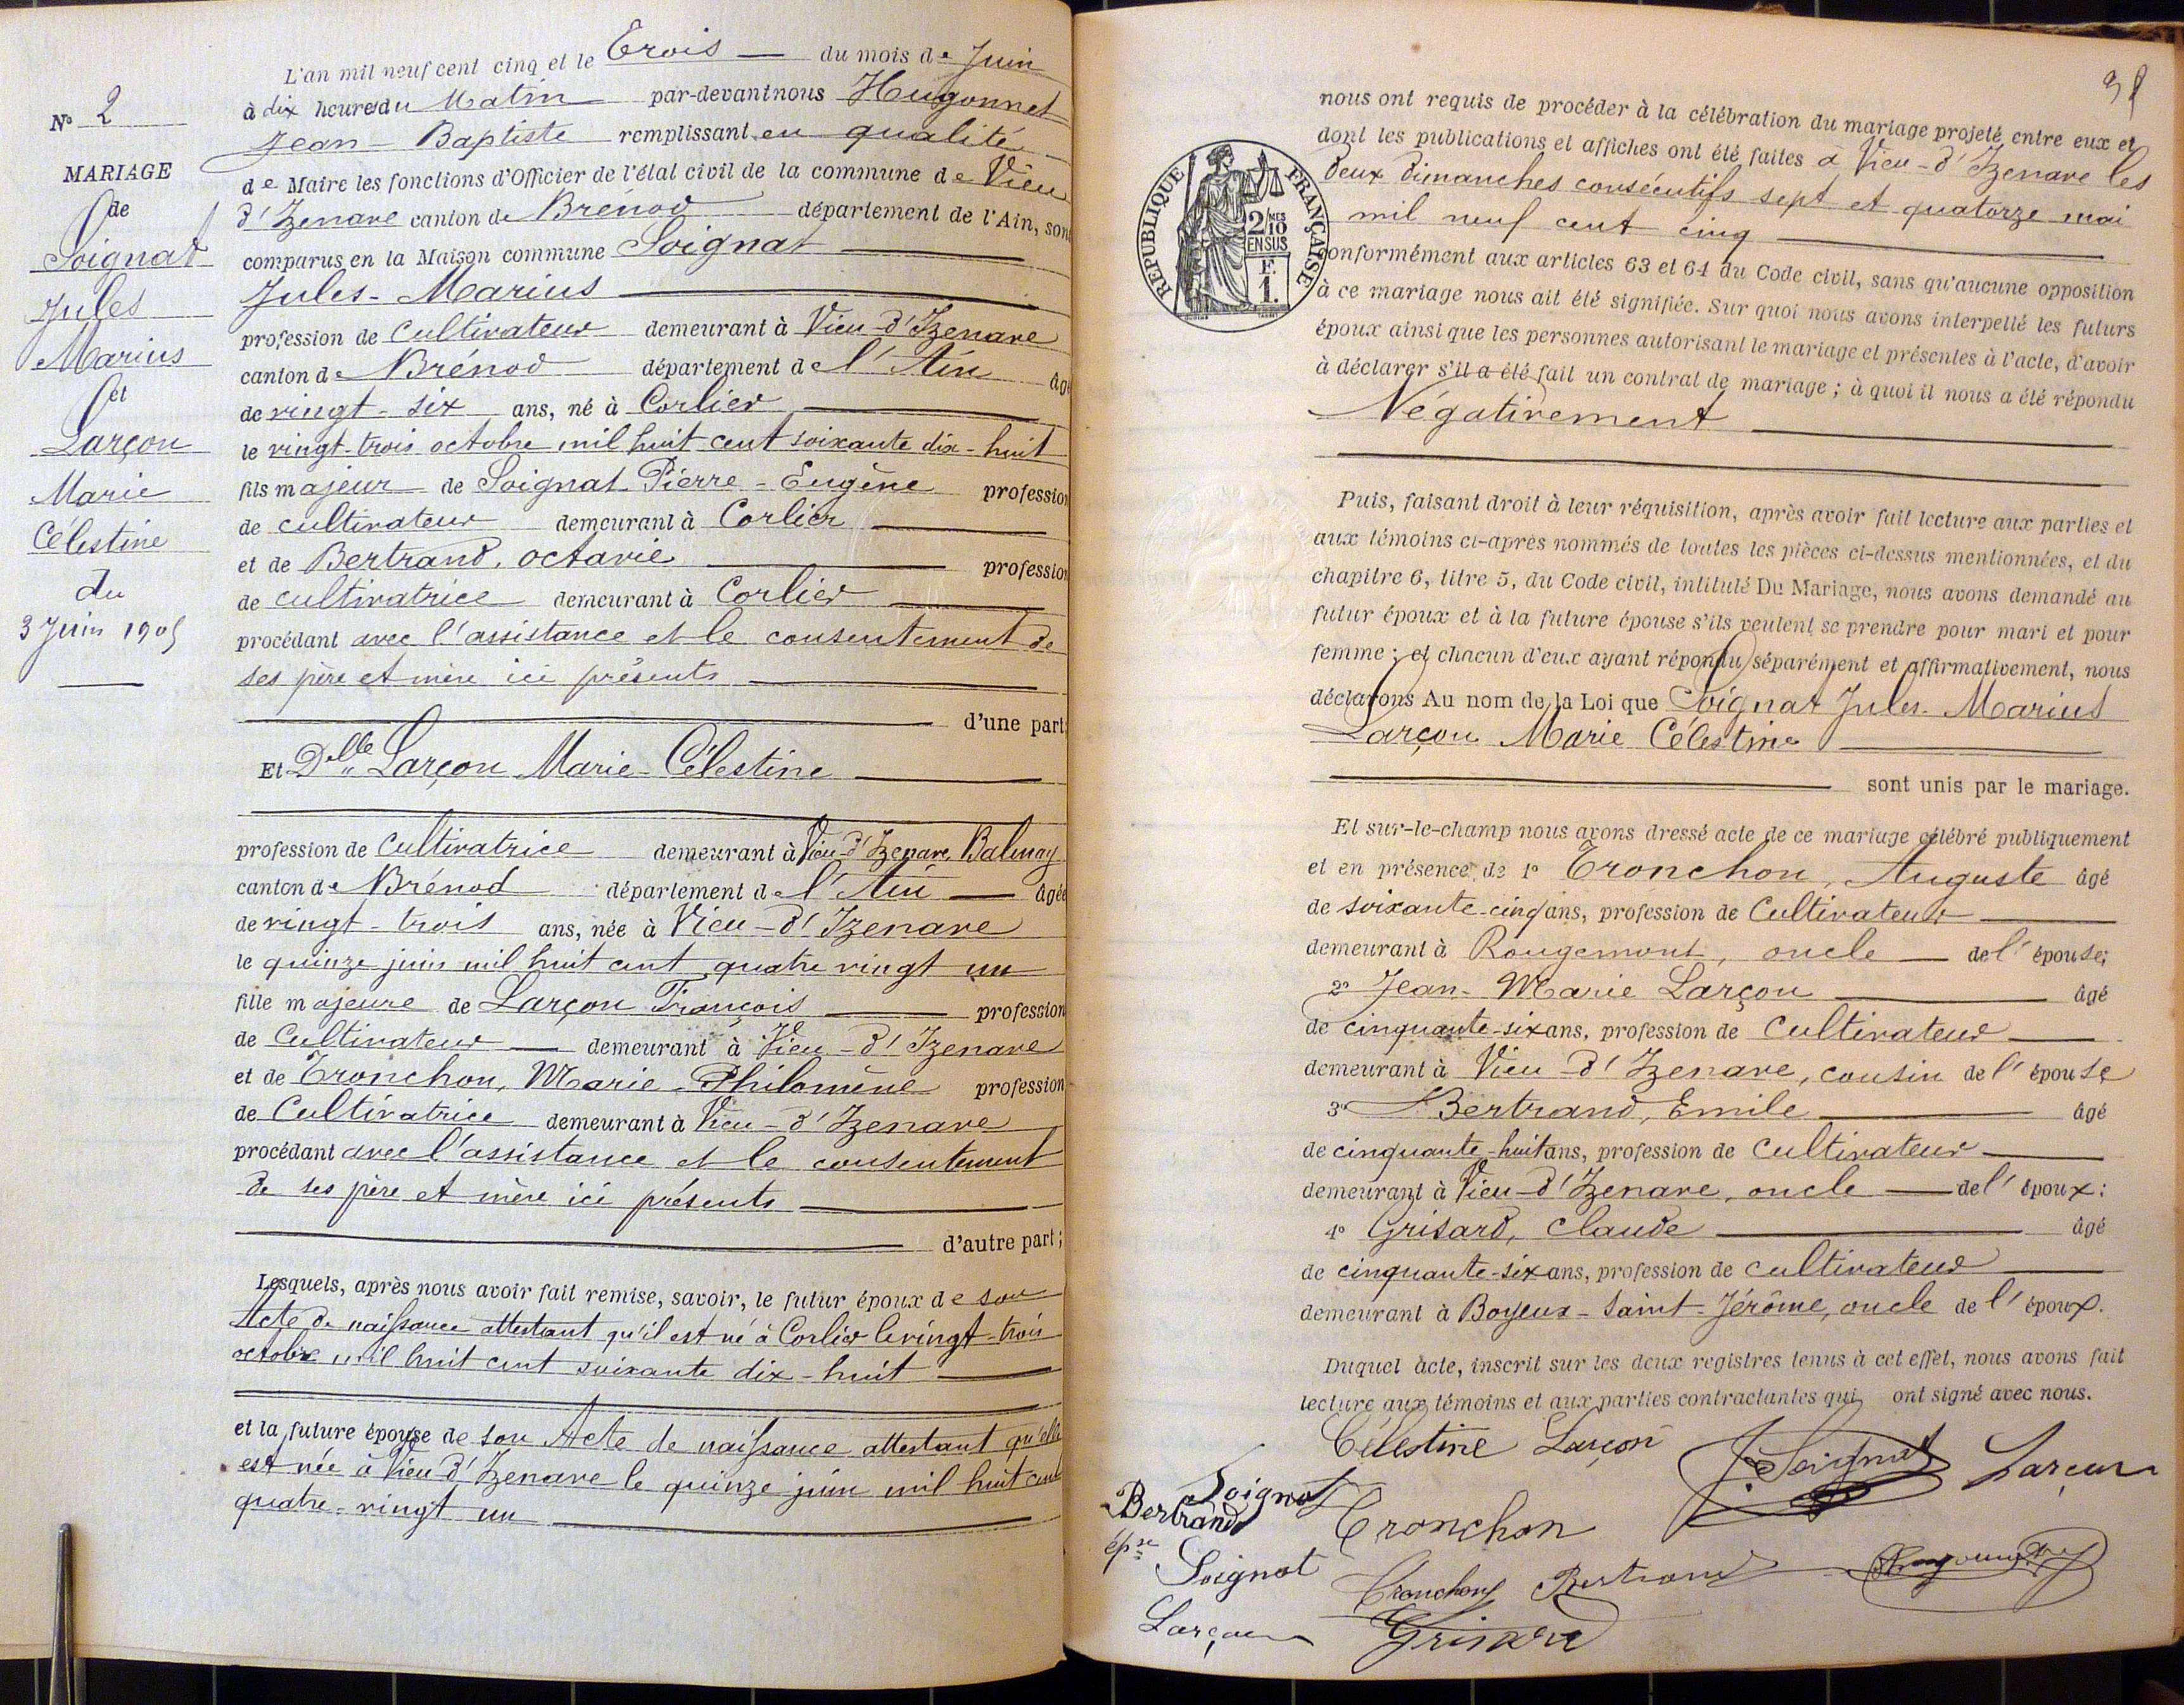 N° 2
MARIAGE
de
Soignat
Jules
Marius
et
Larçon
Marie
Célestine
du
3 Juin 1905
L'an mil neuf cent cinq et le Trois du mois de Juin
à dix heures du Matin par-devant nous Hugonnet
Jean-Baptiste remplissant en qualité
de Maire les fonctions d'Officier de l'état civil de la commune de Vieu
d'Izenave canton de Brénod département de l'Ain, sont
comparus en la Maison commune Soignat
Jules-Marius
profession de cultivateur demeurant à Vieu-d'Izenave
canton de Brénod département de l'Ain âgé
de vingt-six ans, né à Corlier
le vingt-trois octobre mil huit cent soixante dix-huit
fils majeur de Soignat Pierre-Eugène profession
de cultivateur demeurant à Corlier
et de Bertrand, octavie profession
de cultivatrice demeurant à Corlier
procédant avec l'assistance et le consentement de
ses père et mère ici présents
d'une part;
Et Delle Larçon Marie-Célestine
profession de cultivatrice demeurant à Vieu-d'Izenave, Balmay
canton de Brénod département de l'Ain âgée
de vingt-trois ans, née à Vieu-d'Izenave
le quinze juin mil huit cent quatre vingt un
fille majeure de Larçon François profession
de Cultivateur demeurant à Vieu-d'Izenave
et de Tronchon, Marie-Philomène profession
de Cultivatrice demeurant à Vieu-d'Izenave
procédant avec l'assistance et le consentement
de ses père et mère ici présents
d'autre part;
Lesquels, après nous avoir fait remise, savoir, le futur époux de son
Acte de naissance attestant qu'il est né à Corlier le vingt-trois
octobre mil huit cent soixante dix-huit
et la future épouse de son Acte de naissance attestant qu'elle
est née à Vieu d'Izenave le quinze juin mil huit cent
quatre-vingt un
38
REPUBLIQUE FRANÇAISE
2 MES
10
EN SUS
F.
1.
nous ont requis de procéder à la célébration du mariage projeté entre eux et
dont les publications et affiches ont été faites à Vieu-d'Izenave les
deux dimanches consécutifs sept et quatorze mai
mil neuf cent cinq
conformément aux articles 63 et 64 du Code civil, sans qu'aucune opposition
à ce mariage nous ait été signifiée. Sur quoi nous avons interpellé les futurs
époux ainsi que les personnes autorisant le mariage et présentes à l'acte, d'avoir
à déclarer s'il a été fait un contrat de mariage; à quoi il nous a été répondu
Négativement
Puis, faisant droit à leur réquisition, après avoir fait lecture aux parties et
aux témoins ci-après nommés de toutes les pièces ci-dessus mentionnées, et du
chapitre 6, titre 5, du Code civil, intitulé Du Mariage, nous avons demandé au
futur époux et à la future épouse s'ils veulent se prendre pour mari et pour
femme; et chacun d'eux ayant répondu séparément et affirmativement, nous
déclarons Au nom de la Loi que Soignat Jules-Marius
Larçon Marie Célestine
sont unis par le mariage.
Et sur-le-champ nous avons dressé acte de ce mariage célébré publiquement
et en présence de 1° Tronchon, Auguste âgé
de soixante-cinq ans, profession de Cultivateur
demeurant à Rougemont, oncle de l'épouse;
2° Jean-Marie Larçon âgé
de cinquante-six ans, profession de cultivateur
demeurant à Vieu-d'Izenave, cousin de l'épouse
3° Bertrand, Emile âgé
de cinquante-huit ans, profession de cultivateur
demeurant à Vieu-d'Izenave, oncle de l'époux:
4° Grisard, Claude âgé
de cinquante-six ans, profession de cultivateur
demeurant à Boyeux-Saint-Jérôme, oncle de l'époux.
Duquel acte, inscrit sur les deux registres tenus à cet effet, nous avons fait
lecture aux témoins et aux parties contractantes qui ont signé avec nous.
Célestine Larçon J. Soignat Larçon
Soignat
Bertrand Tronchon
épse
Soignat Tronchon Bertrand Hugonnet
Larçon Grisard